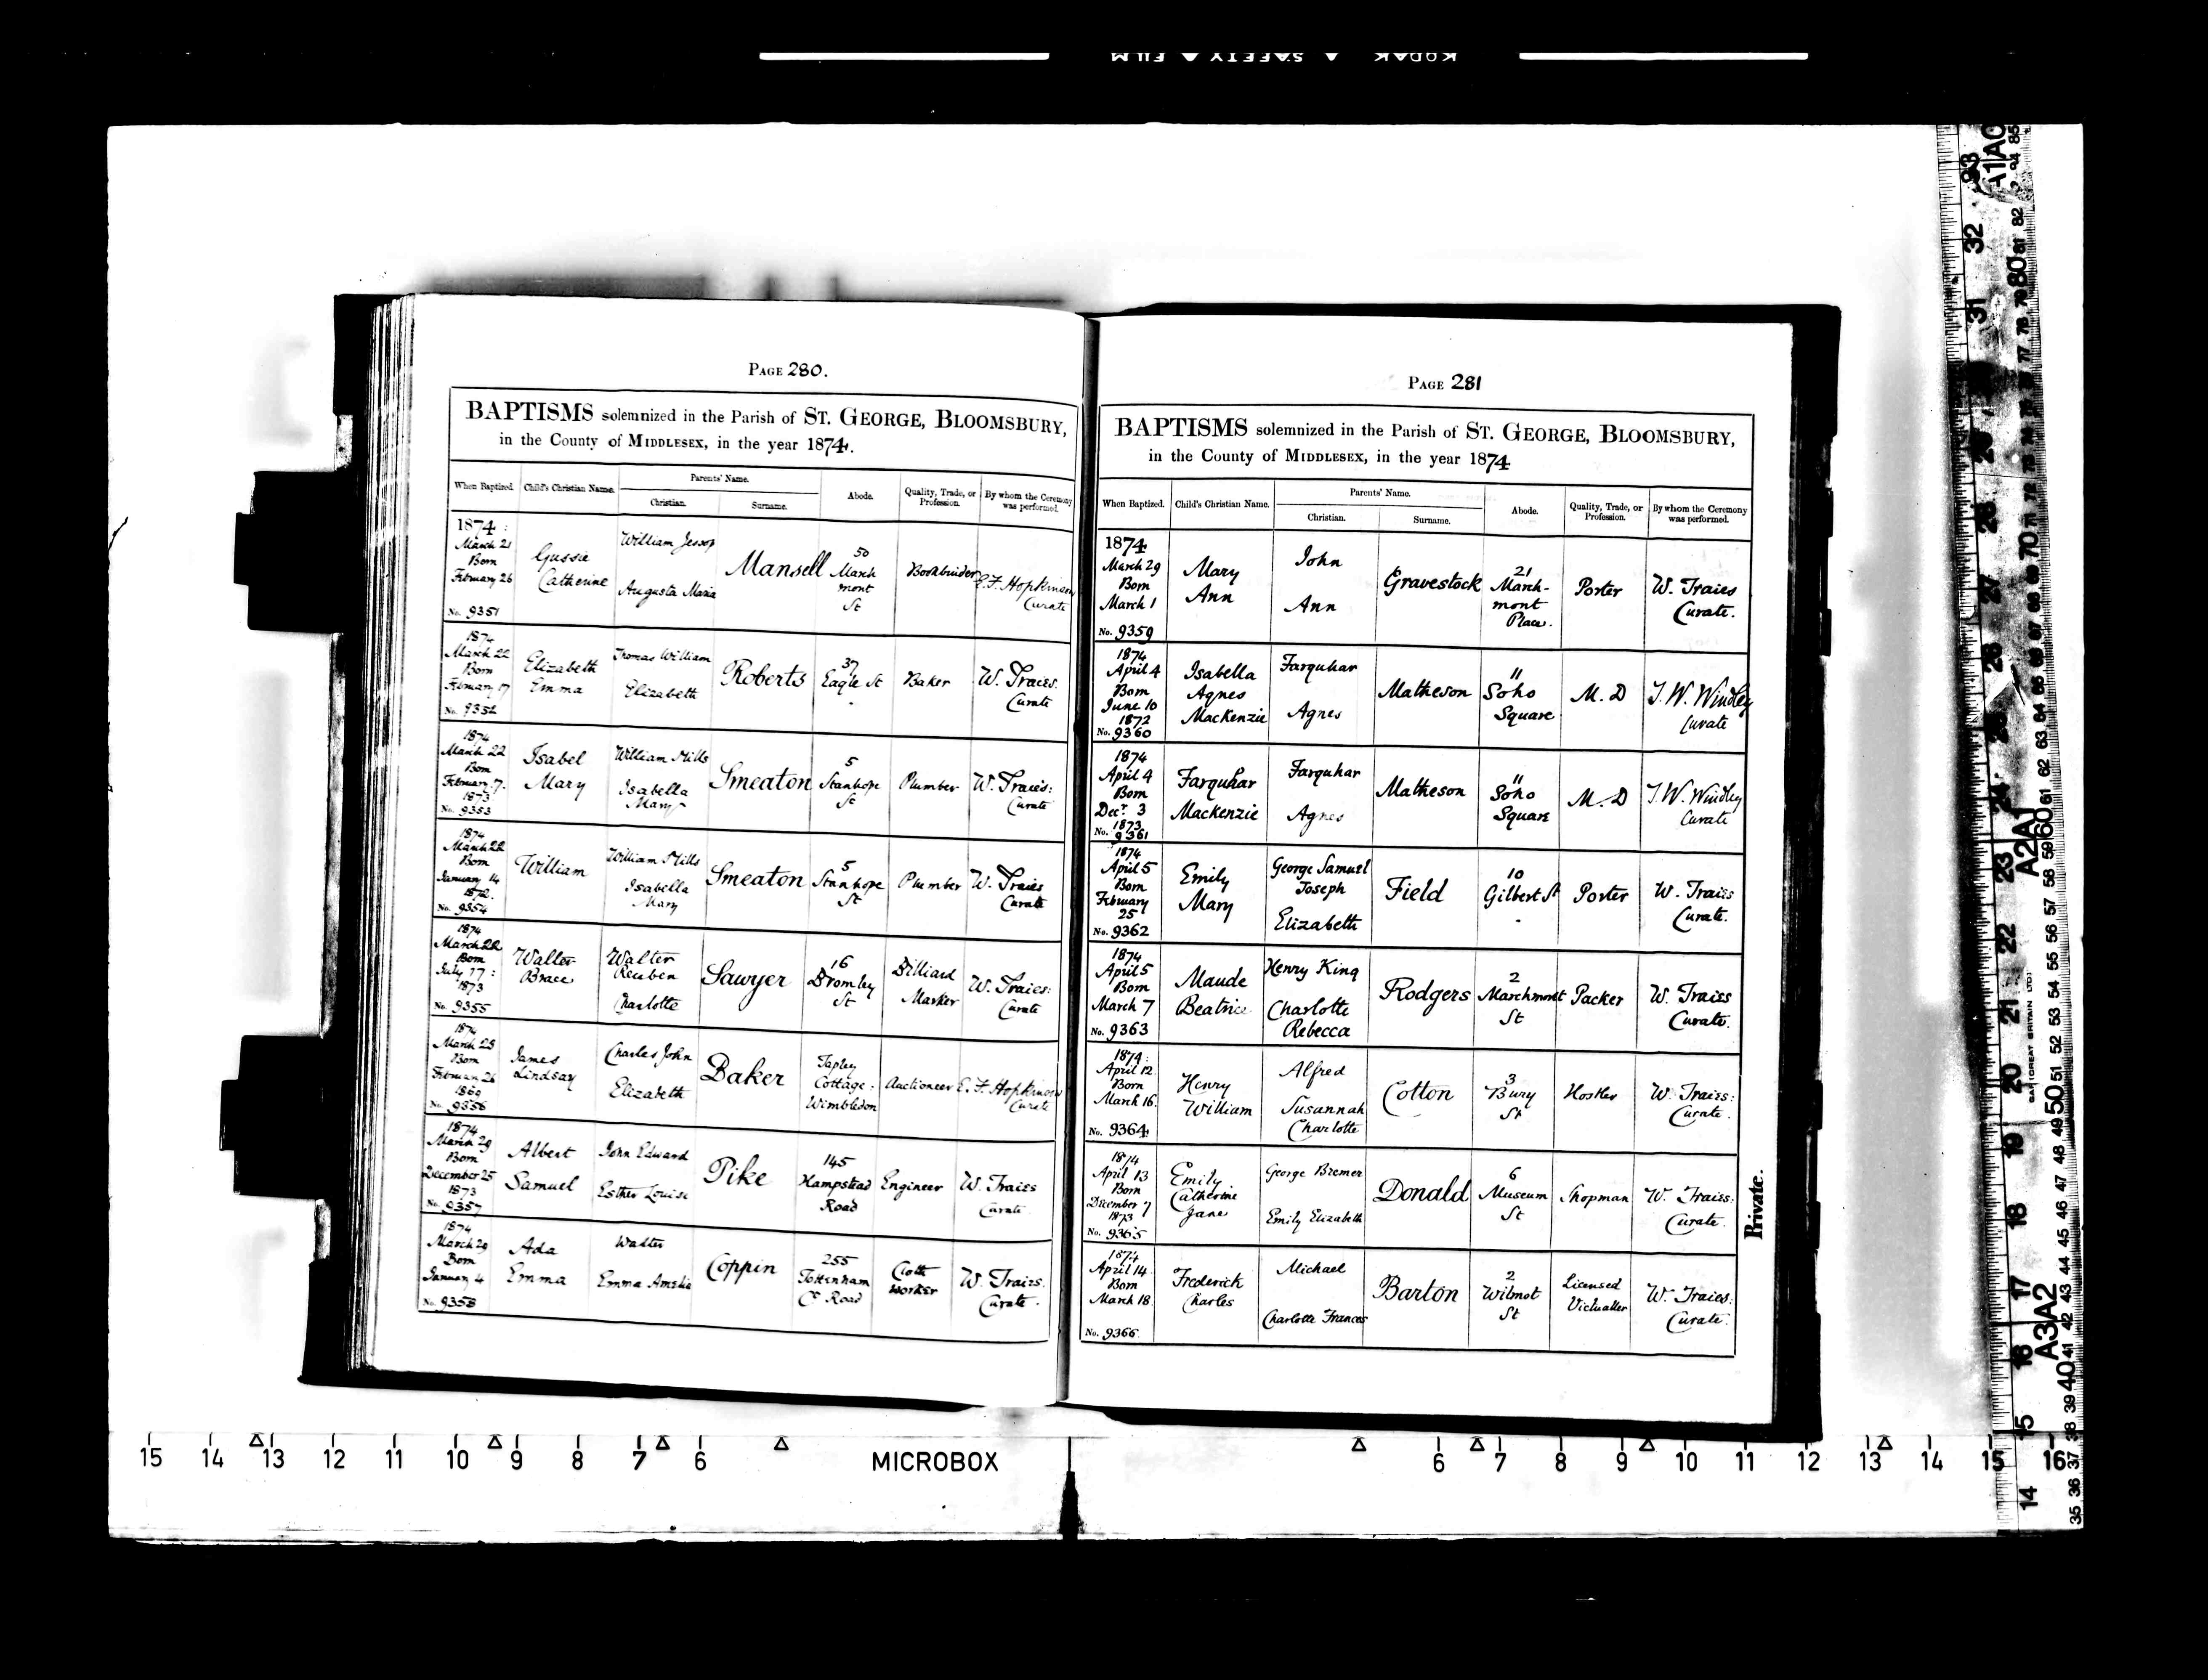 KODAK ▲ SAFETY ▲ FILM
PAGE 280.
BAPTISMS solemnized in the Parish of ST. GEORGE, BLOOMSBURY,
in the County of MIDDLESEX, in the year 1874.
When Baptized. Child's Christian Name. Parents' Name. Christian. Surname. Abode. Quality, Trade, or Profession. By whom the Ceremony was performed.
1874: March 21 Born February 26 No. 9351 Gussie Catherine William Jessop Augusta Maria Mansell 50 Marchmont St Bookbinder E.F. Hopkinson Curate
1874 March 22 Born February 17 No. 9352 Elizabeth Emma Thomas William Elizabeth Roberts 37 Eagle St Baker W. Traies. Curate
1874 March 22 Born February 7. 1873 No. 9353 Isabel Mary William Mills Isabella Mary Smeaton 5 Stanhope St Plumber W. Traies: Curate
1874 March 22 Born January 14 1872. No. 9354 William William Mills Isabella Mary Smeaton 5 Stanhope St Plumber W. Traies Curate
1874 March 22 Born July 17: 1873 No. 9355 Walter Brace Walter Reuben Charlotte Sawyer 16 Bromley St Billiard Marker W. Traies: Curate
1874 March 28 Born February 26 1869 No. 9356 James Lindsay Charles John Elizabeth Baker Tapley Cottage: Wimbledon Auctioneer E.F. Hopkinson Curate
1874 March 29 Born December 25 1873 No. 9357 Albert Samuel John Edward Esther Louise Pike 145 Hampstead Road Engineer W. Traies Curate
1874 March 29 Born January 4 No. 9358 Ada Emma Walter Emma Amelia Coppin 255 Tottenham Ct Road Cloth worker W. Traies. Curate.
PAGE 281
BAPTISMS solemnized in the Parish of ST. GEORGE, BLOOMSBURY,
in the County of MIDDLESEX, in the year 1874
When Baptized. Child's Christian Name. Parents' Name. Christian. Surname. Abode. Quality, Trade, or Profession. By whom the Ceremony was performed.
1874 March 29 Born March 1 No. 9359 Mary Ann John Ann Gravestock 21 Marchmont Place. Porter W. Traies Curate.
1874 April 4 Born June 10 1872 No. 9360 Isabella Agnes Mackenzie Farquhar Agnes Matheson 11 Soho Square M.D T.W. Windley Curate
1874 April 4 Born Decr. 3 1873 No. 9361 Farquhar Mackenzie Farquhar Agnes Matheson 11 Soho Square M.D T.W. Windley Curate
1874 April 5 Born February 25 No. 9362 Emily Mary George Samuel Joseph Elizabeth Field 10 Gilbert St Porter W. Traies Curate.
1874 April 5 Born March 7 No. 9363 Maude Beatrice Henry King Charlotte Rebecca Rodgers 2 Marchmont St Packer W. Traies Curate.
1874: April 12 Born March 16. No. 9364 Henry William Alfred Susannah Charlotte Cotton 3 Bury St Hostler W. Traies: Curate.
1874 April 13 Born December 7 1873 No. 9365 Emily Catherine Jane George Bremer Emily Elizabeth Donald 6 Museum St Shopman W. Traies: Curate.
1874 April 14 Born March 18 No. 9366 Frederick Charles Michael Charlotte Frances Barton 2 Wilmot St Licensed Victualler W. Traies: Curate.
Private.
15 14 13 12 11 10 9 8 7 6 MICROBOX 6 7 8 9 10 11 12 13 14 15 16